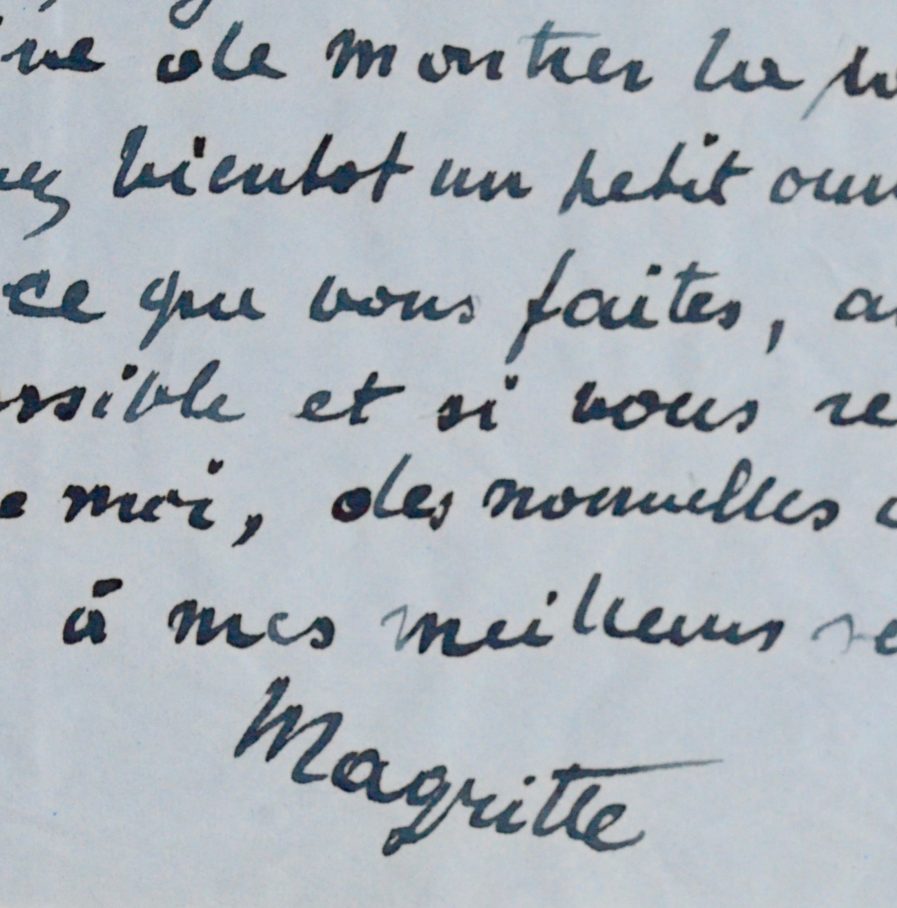 de montrer la
bientot un petit
ce que vous faites,
ossible et si vous re
e moi, des nouvelles
à mes meilleurs se
Magritte